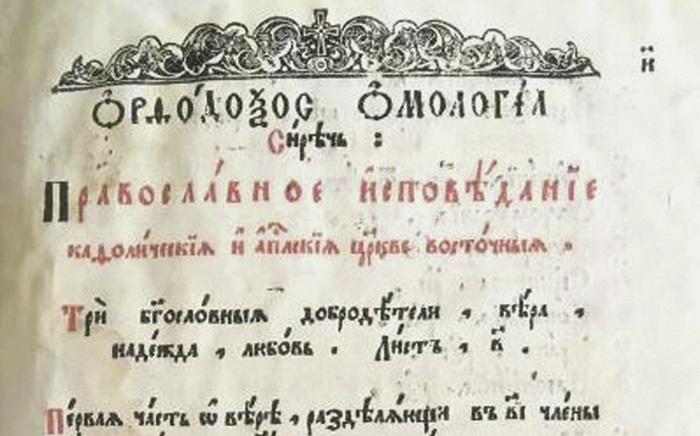 и҃
Ѻ҆рѳо́доѯос Ѻ҆мологі́а
Си́рѣчь :
Православ́ное и҆сповѣ́данїе
каѳоли́ческїѧ и҆ а҆пⷭ҇лскїѧ цр҃кве восто́чныѧ .
Трѝ бг҃осло́вныѧ добродѣ́тели , вѣ́ра ,
наде́жда , любо́вь . Ли́стъ , в҃ .
Пе́рваѧ ча́сть ѡ҆ вѣ́рѣ , раздѣлѧ́ющи въ в҃і чле́ны